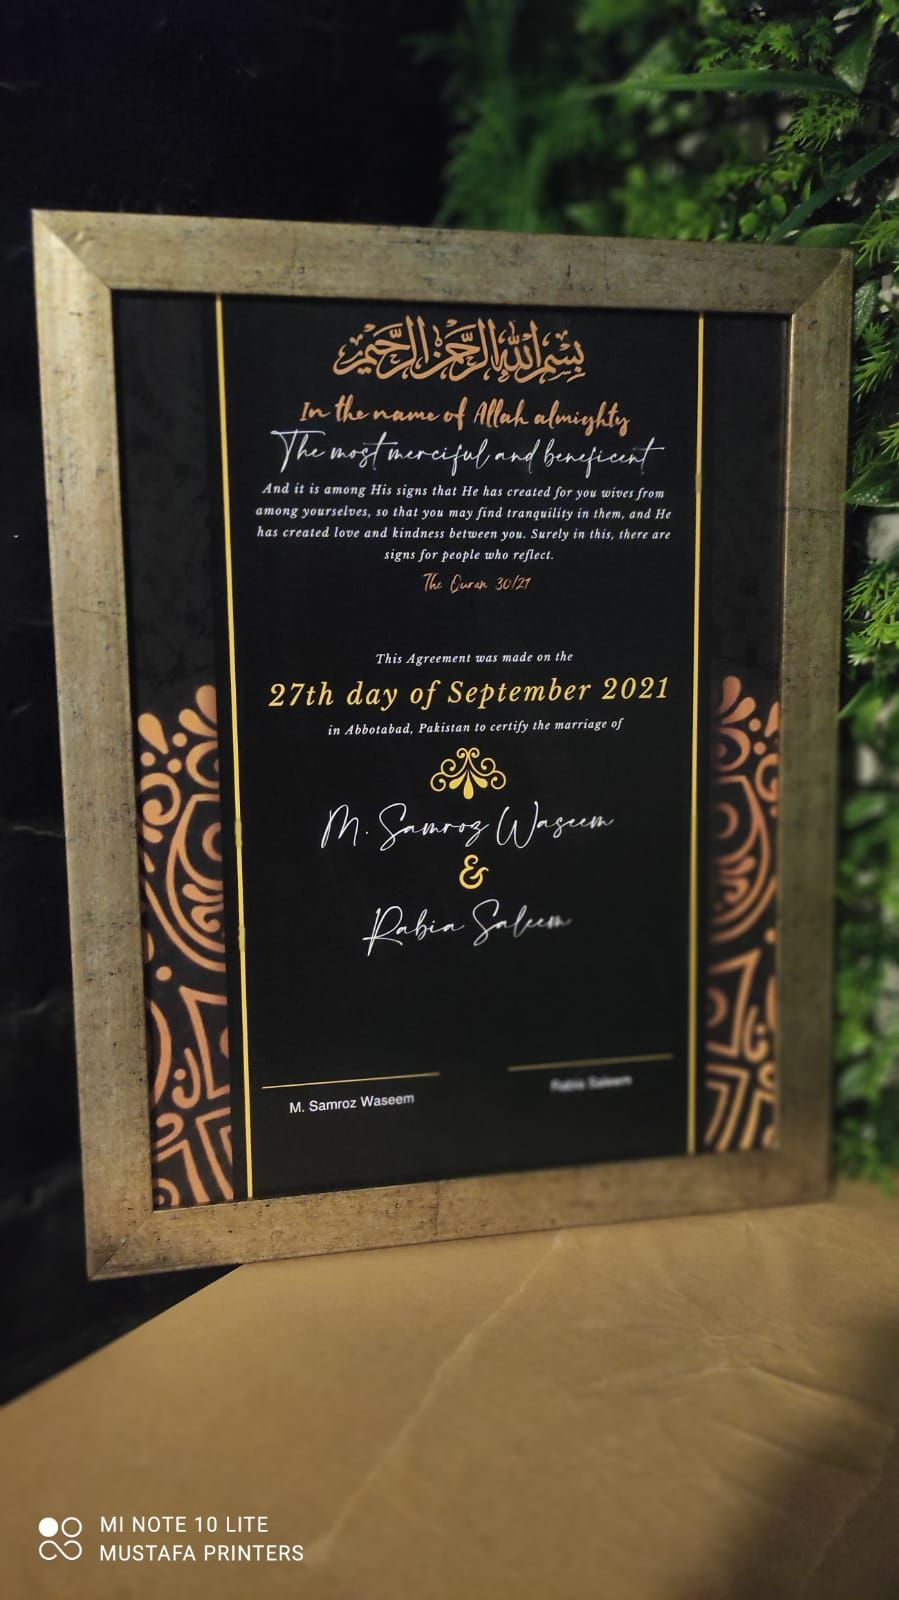 بسم الله الرحمن الرحيم
In the name of Allah almighty
The most merciful and beneficent
And it is among His signs that He has created for you wives from
among yourselves, so that you may find tranquility in them, and He
has created love and kindness between you. Surely in this, there are
signs for people who reflect.
The Quran 30/21
This Agreement was made on the
27th day of September 2021
in Abbotabad, Pakistan to certify the marriage of
M. Samroz Waseem
&
Rabia Saleem
M. Samroz Waseem
Rabia Saleem
MI NOTE 10 LITE
MUSTAFA PRINTERS